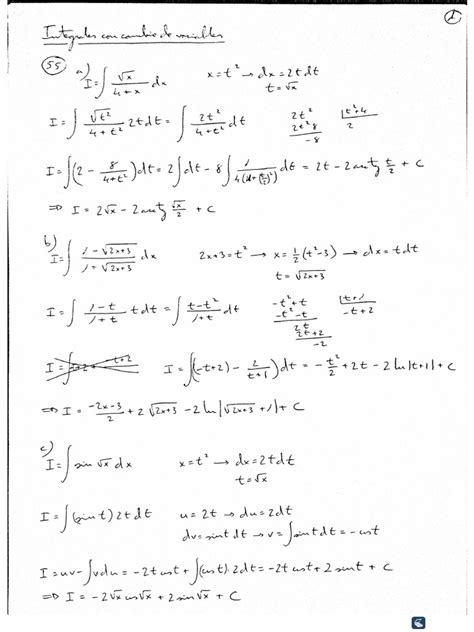 1
Integrales con cambio de variables
55 a) I = ∫ √x/(4+x) dx    x = t² → dx = 2t dt
t = √x
I = ∫ √t²/(4+t²) 2t dt = ∫ 2t²/(4+t²) dt    2t² | t²+4
2t² 8    2
-8
I = ∫(2 - 8/(4+t²)) dt = 2∫dt - 8∫ 1/(4(1+(t/2)²)) dt = 2t - 2 arctg t/2 + C
⇒ I = 2√x - 2 arctg √x/2 + C
b) I = ∫ (1-√(2x+3))/(1+√(2x+3)) dx    2x+3 = t² → x = ½(t²-3) → dx = t dt
t = √(2x+3)
I = ∫ (1-t)/(1+t) t dt = ∫ (t-t²)/(1+t) dt    -t²+t | t+1
-t²-t    -t+2
2t
2t+2
-2
I = ∫(-t+2) - 2/(t+1)) dt = -t²/2 + 2t - 2 ln|t+1| + C
⇒ I = (-2x-3)/2 + 2√(2x+3) - 2 ln|√(2x+3) + 1| + C
c) I = ∫ sin √x dx    x = t² → dx = 2t dt
t = √x
I = ∫(sin t) 2t dt    u = 2t → du = 2dt
dv = sin t dt → v = ∫ sin t dt = -cos t
I = uv - ∫v du = -2t cos t + ∫(cos t)·2dt = -2t cos t + 2 sin t + C
⇒ I = -2√x cos √x + 2 sin √x + C